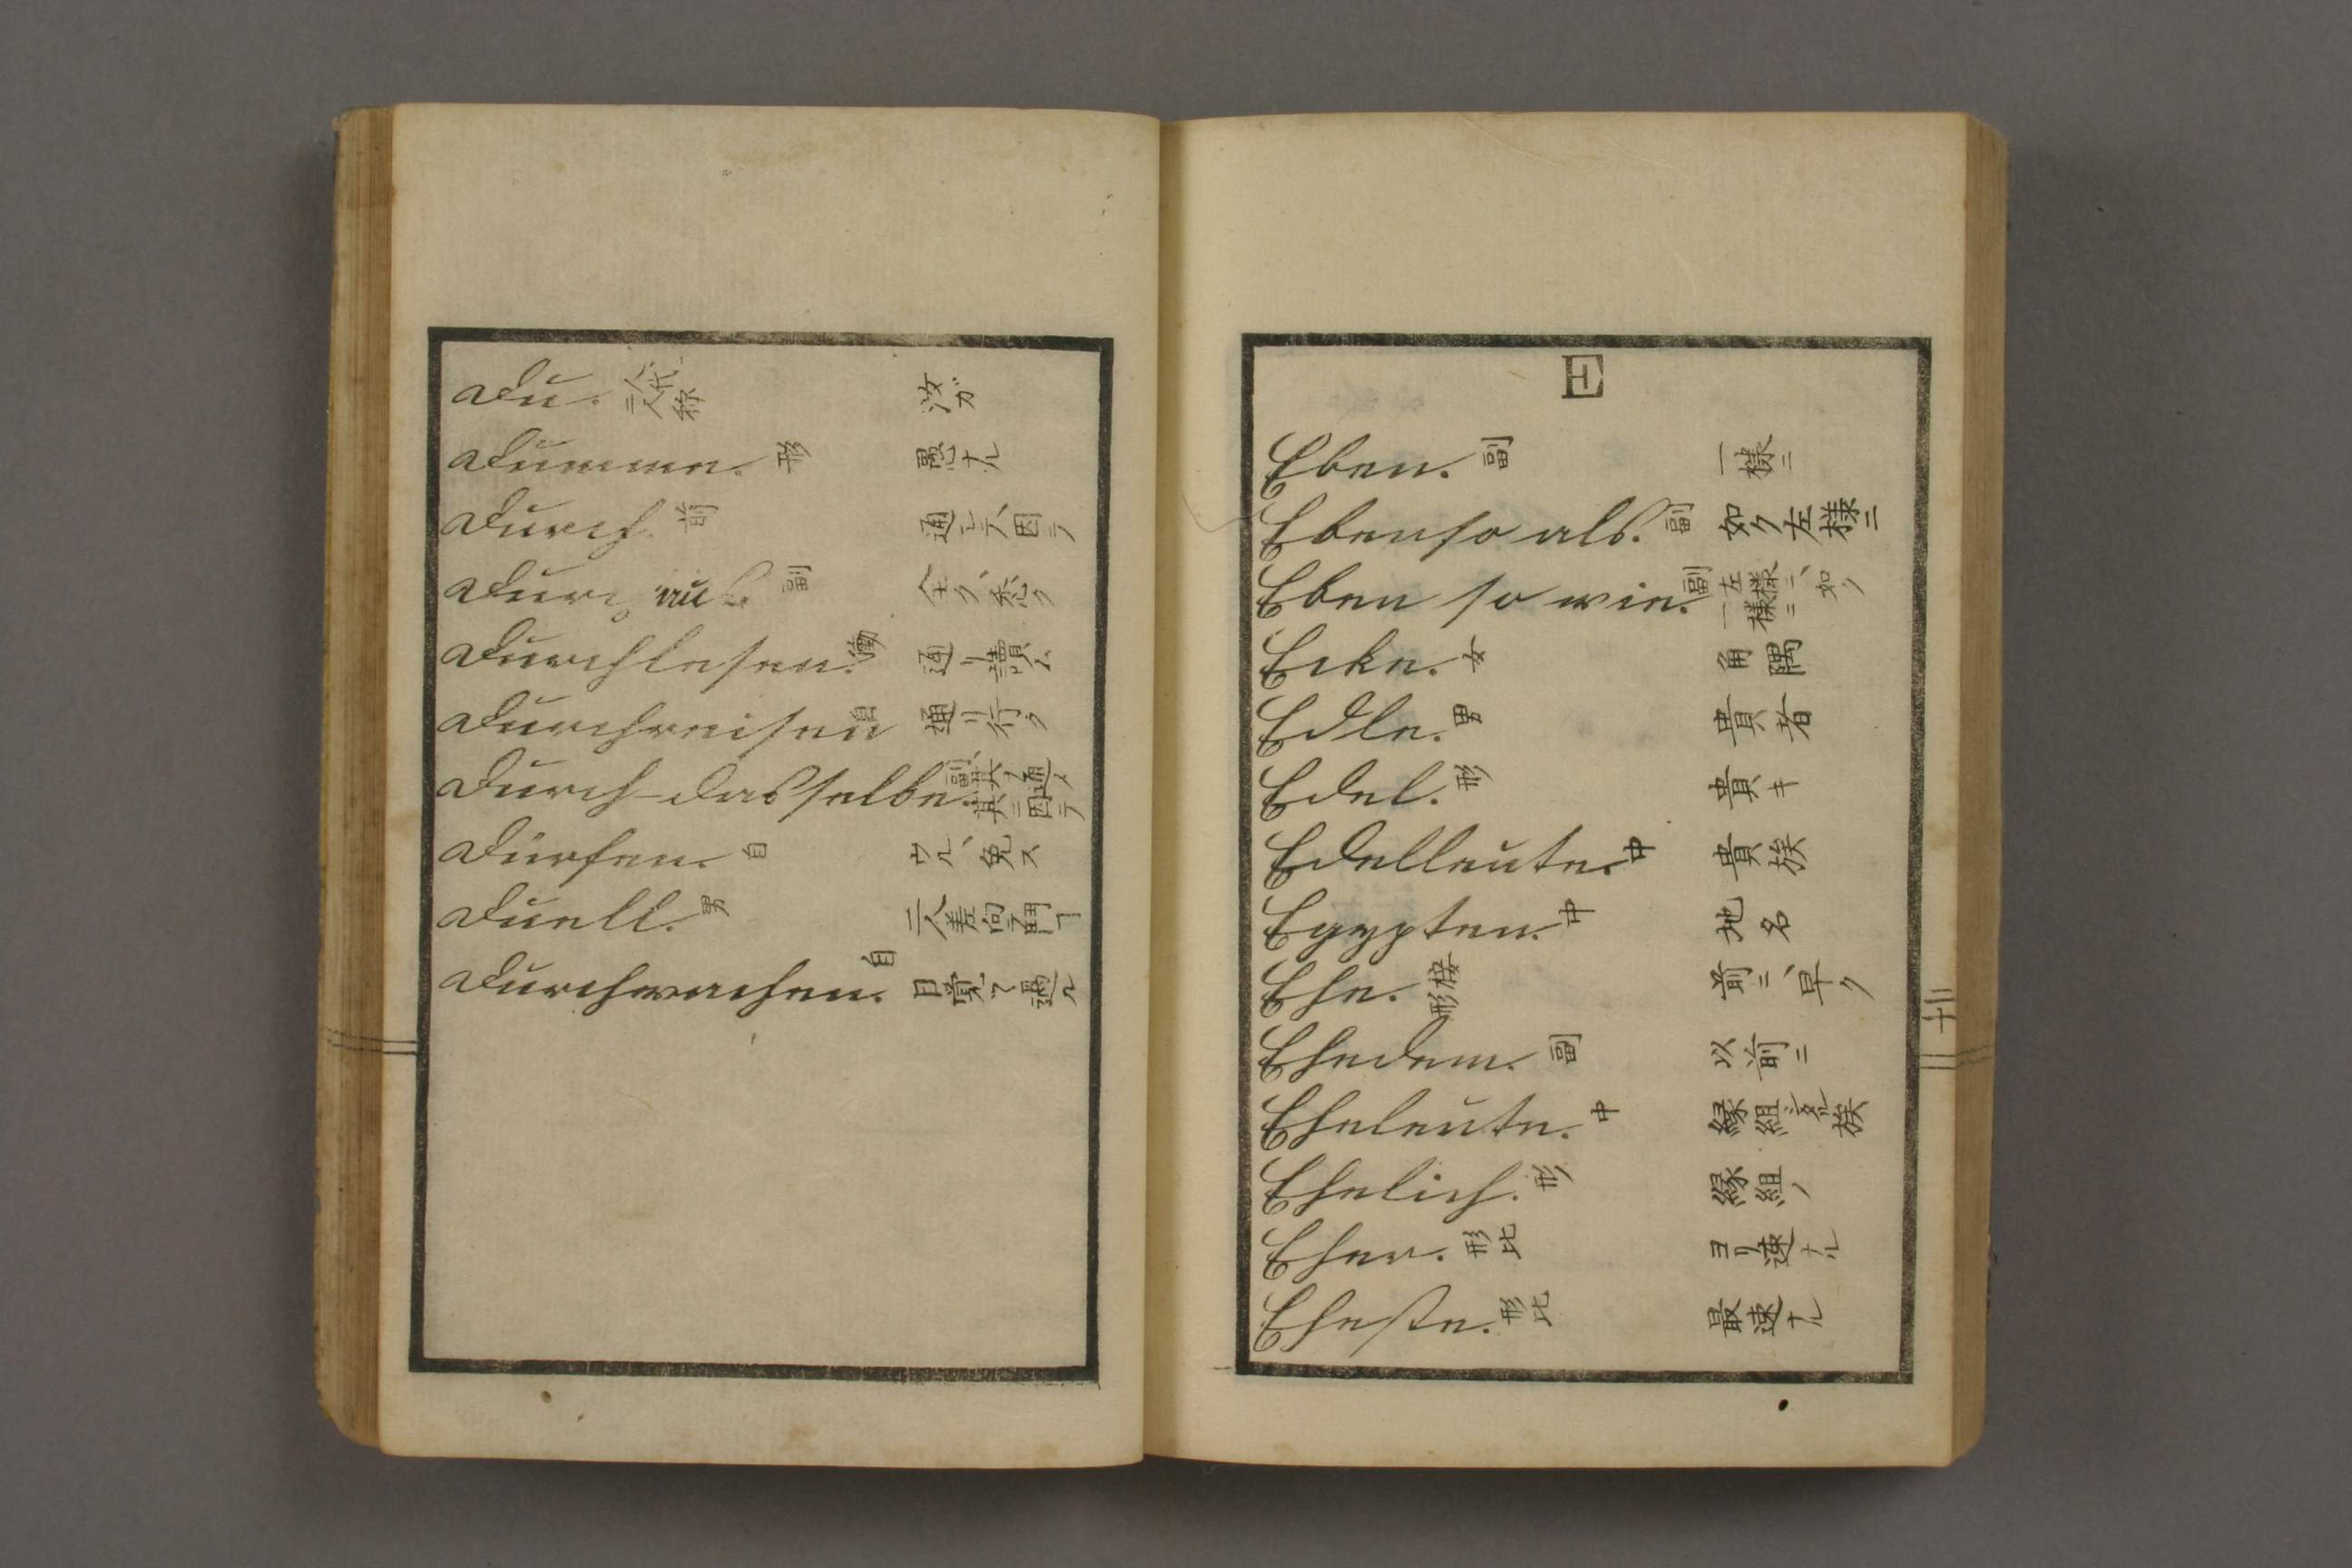 Du. 人代二人称 汝ガ
Dumme. 形 愚ナル
Durch. 前 通シテ、因テ
Durchaus 副 全ク、悉ク
Durchlesen. 働 通リ讀ム
Durchreisen 自 通リ行ク
Durch-dasselbe. 副 其ノ通メ、其ニ因テ
Dürfen. 自 ウル、免ス
Duell. 男 二人差向鬪フ
Durchwachen. 自 目覚テ過ル
E
Eben. 副 一様ニ
Eben so als. 副 如ク左様ニ
Eben so wie. 副 左様ニ、如ク一様ニ
Ecke. 女 角隅
Edle. 男 貴者
Edel. 形 貴キ
Edelleute. 中 貴族
Egypten. 中 地名
Ehe. 接形 前ニ、早ク
Ehedem. 副 以前ニ
Eheleute. 中 縁組シタル族
Ehelich. 形 縁組ノ
Eher. 形比 ヨリ速ナル
Eheste. 形比 最速ナル